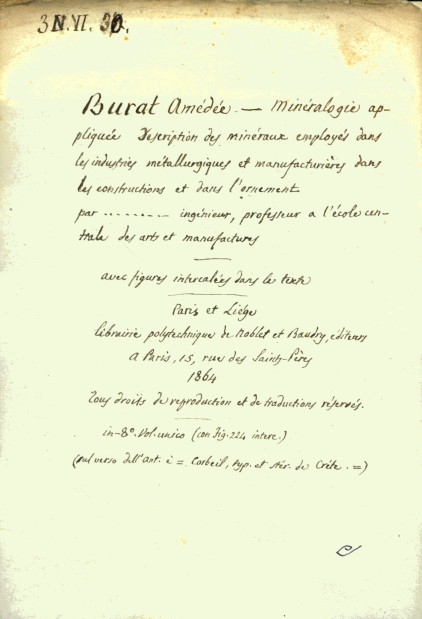 3 N. VI. 30.
Burat Amédée. — Minéralogie ap-
pliquée Description des minéraux employés dans
les industries métallurgiques et manufacturières dans
les constructions et dans l'ornement
par ......... ingénieur, professeur a l'école cen-
trale des arts et manufactures
avec figures intercalées dans le texte
Paris et Liége
librairie polytechnique de Noblet et Baudry, éditeurs
a Paris, 15, rue des Saints-Pères
1864
Tous droits de reproduction et de traductions réservés.
in-8º. Vol. unico (con fig. 224 interc.)
(sul verso dell'Ant. è = Corbeil, typ. et stér. de Crété. =)